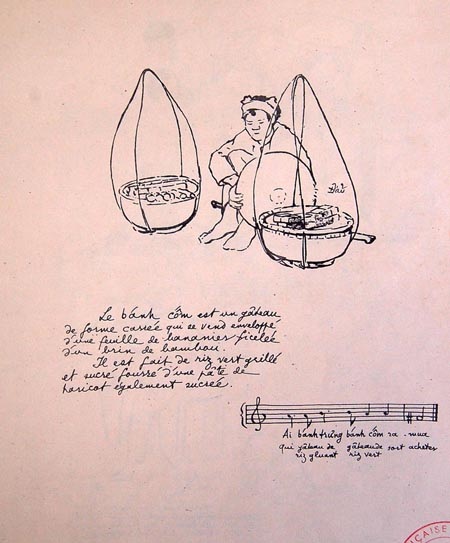 Đẩu
Le bánh cốm est un gâteau
de forme carrée qui se vend enveloppé
d'une feuille de bananier ficelée
d'un brin de bambou.
Il est fait de riz vert grillé
et sucré fourré d'une pâte de
haricot également sucrée.
Ai bánh trưng bánh cốm ra - mua
Qui gâteau de gâteau de sort acheter
riz gluant riz vert
ÇAISE